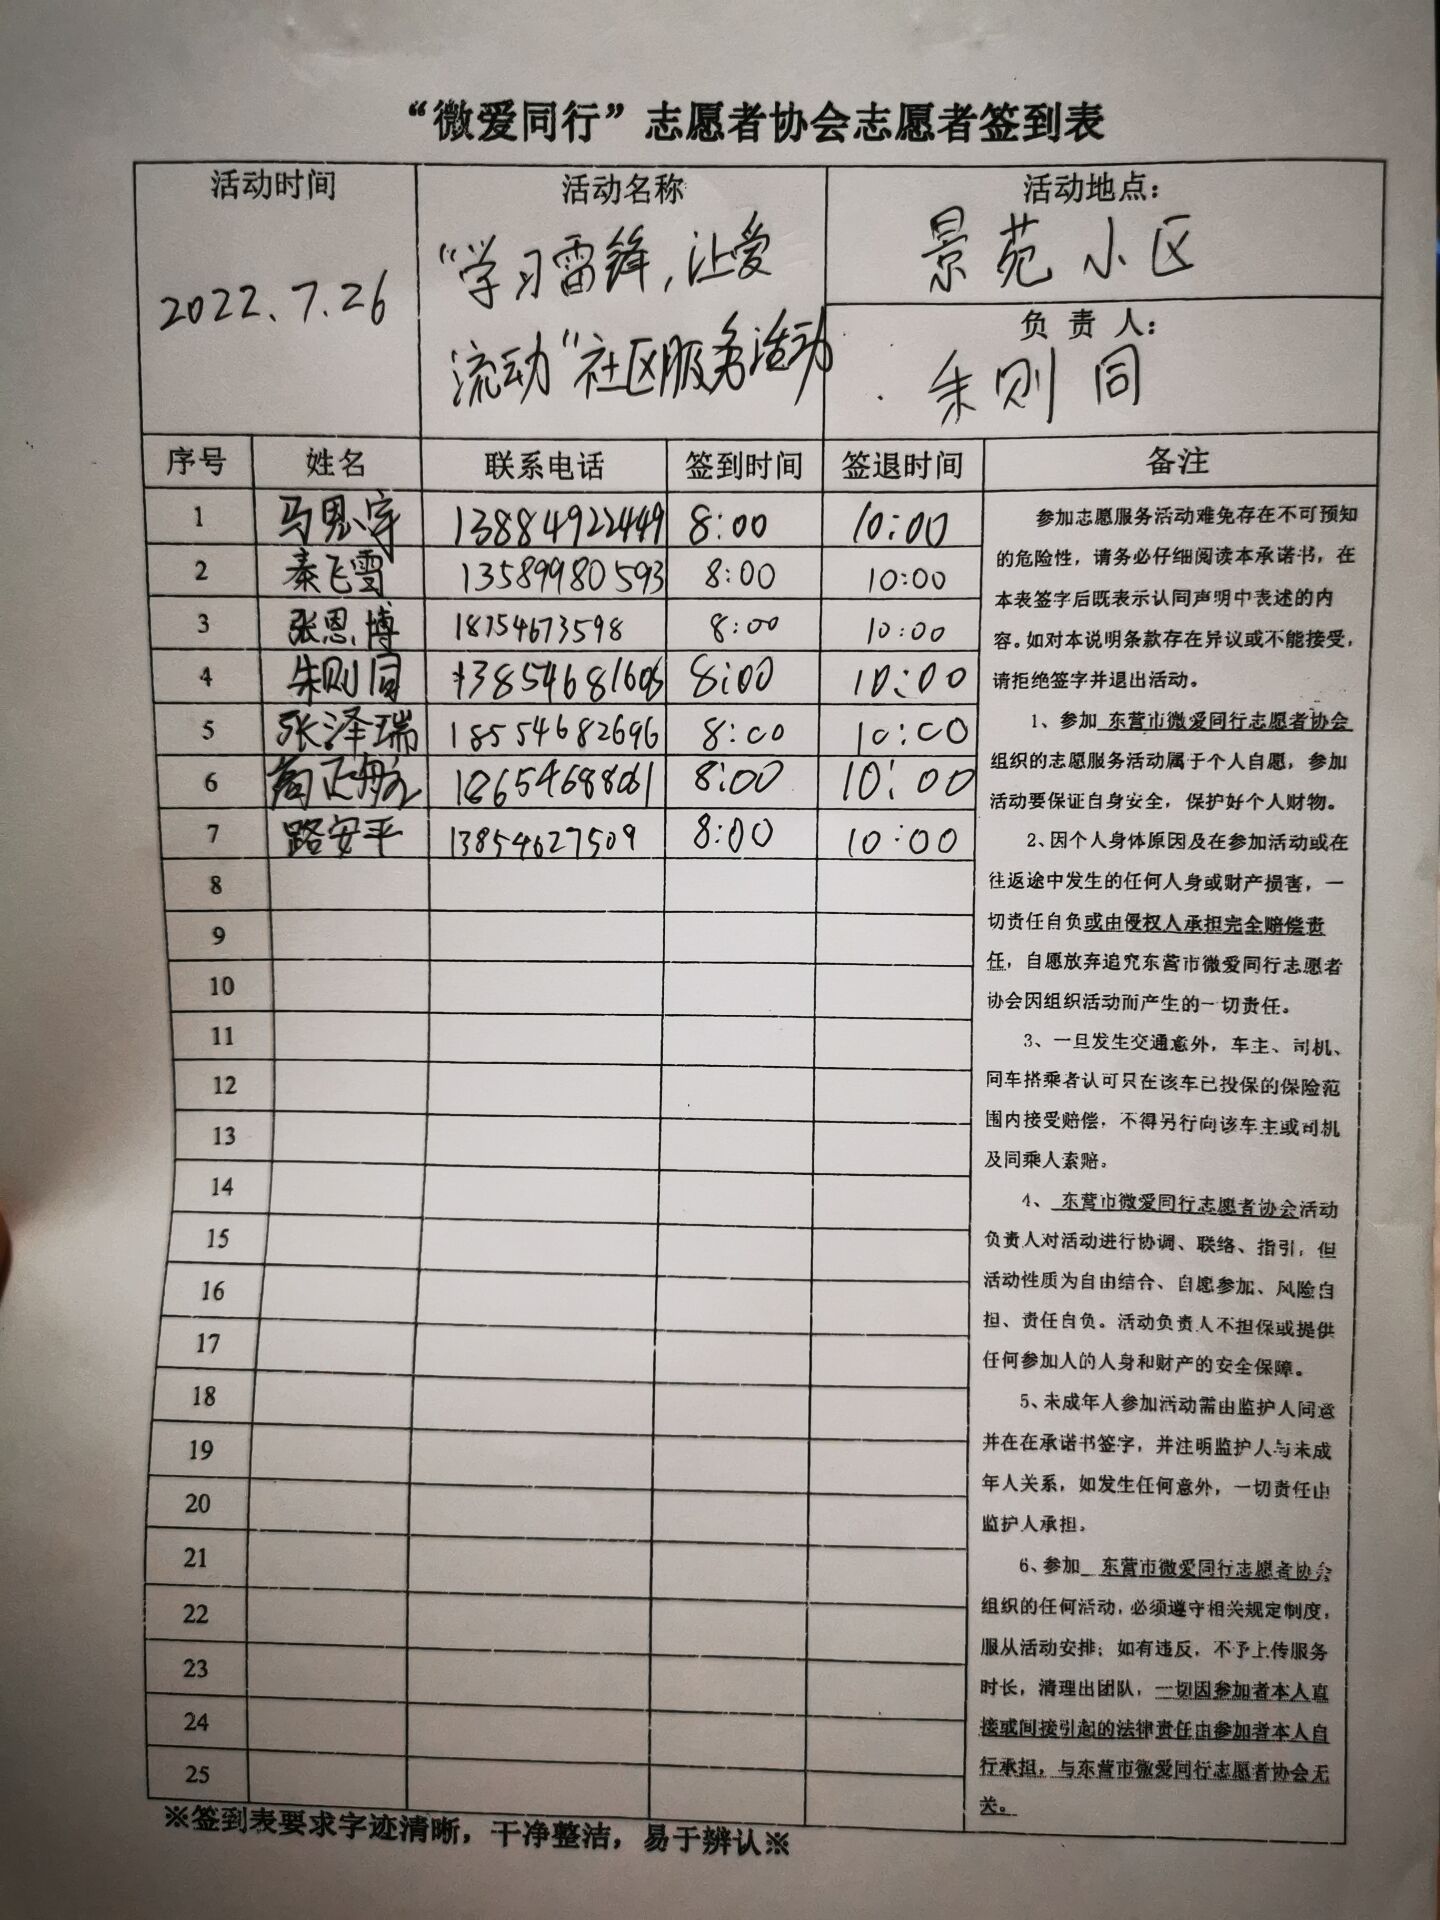 “微爱同行”志愿者协会志愿者签到表
活动时间 活动名称 活动地点：
2022.7.26 “学习雷锋，让爱 景苑小区
流动”社区服务活动 负责人：
朱则同
序号 姓名 联系电话 签到时间 签退时间 备注
1 马思宇 13884922449 8:00 10:00
2 秦飞雪 13589980593 8:00 10:00
3 张恩博 18754673598 8:00 10:00
4 朱则同 13854681606 8:00 10:00
5 张泽瑞 18554682696 8:00 10:00
6 正航 8:00 10:00
7 路安平 13854627509 8:00 10:00
8
9
10
11
12
13
14
15
16
17
18
19
20
21
22
23
24
25
参加志愿服务活动难免存在不可预知
的危险性，请务必仔细阅读本承诺书，在
本表签字后既表示认同声明中表述的内
容。如对本说明条款存在异议或不能接受，
请拒绝签字并退出活动。
1、参加 东营市微爱同行志愿者协会
组织的志愿服务活动属于个人自愿，参加
活动要保证自身安全，保护好个人财物。
2、因个人身体原因及在参加活动或在
往返途中发生的任何人身或财产损害，一
切责任自负或由侵权人承担完全赔偿责
任，自愿放弃追究东营市微爱同行志愿者
协会因组织活动而产生的一切责任。
3、一旦发生交通意外，车主、司机、
同车搭乘者认可只在该车已投保的保险范
围内接受赔偿，不得另行向该车主或司机
及同乘人索赔。
4、 东营市微爱同行志愿者协会活动
负责人对活动进行协调、联络、指引，但
活动性质为自由结合、自愿参加、风险自
担、责任自负。活动负责人不担保或提供
任何参加人的人身和财产的安全保障。
5、未成年人参加活动需由监护人同意
并在在承诺书签字，并注明监护人与未成
年人关系，如发生任何意外，一切责任由
监护人承担。
6、参加 东营市微爱同行志愿者协会
组织的任何活动，必须遵守相关规定制度，
服从活动安排；如有违反，不予上传服务
时长，清理出团队，一切因参加者本人直
接或间接引起的法律责任由参加者本人自
行承担，与东营市微爱同行志愿者协会无
关。
※签到表要求字迹清晰，干净整洁，易于辨认※